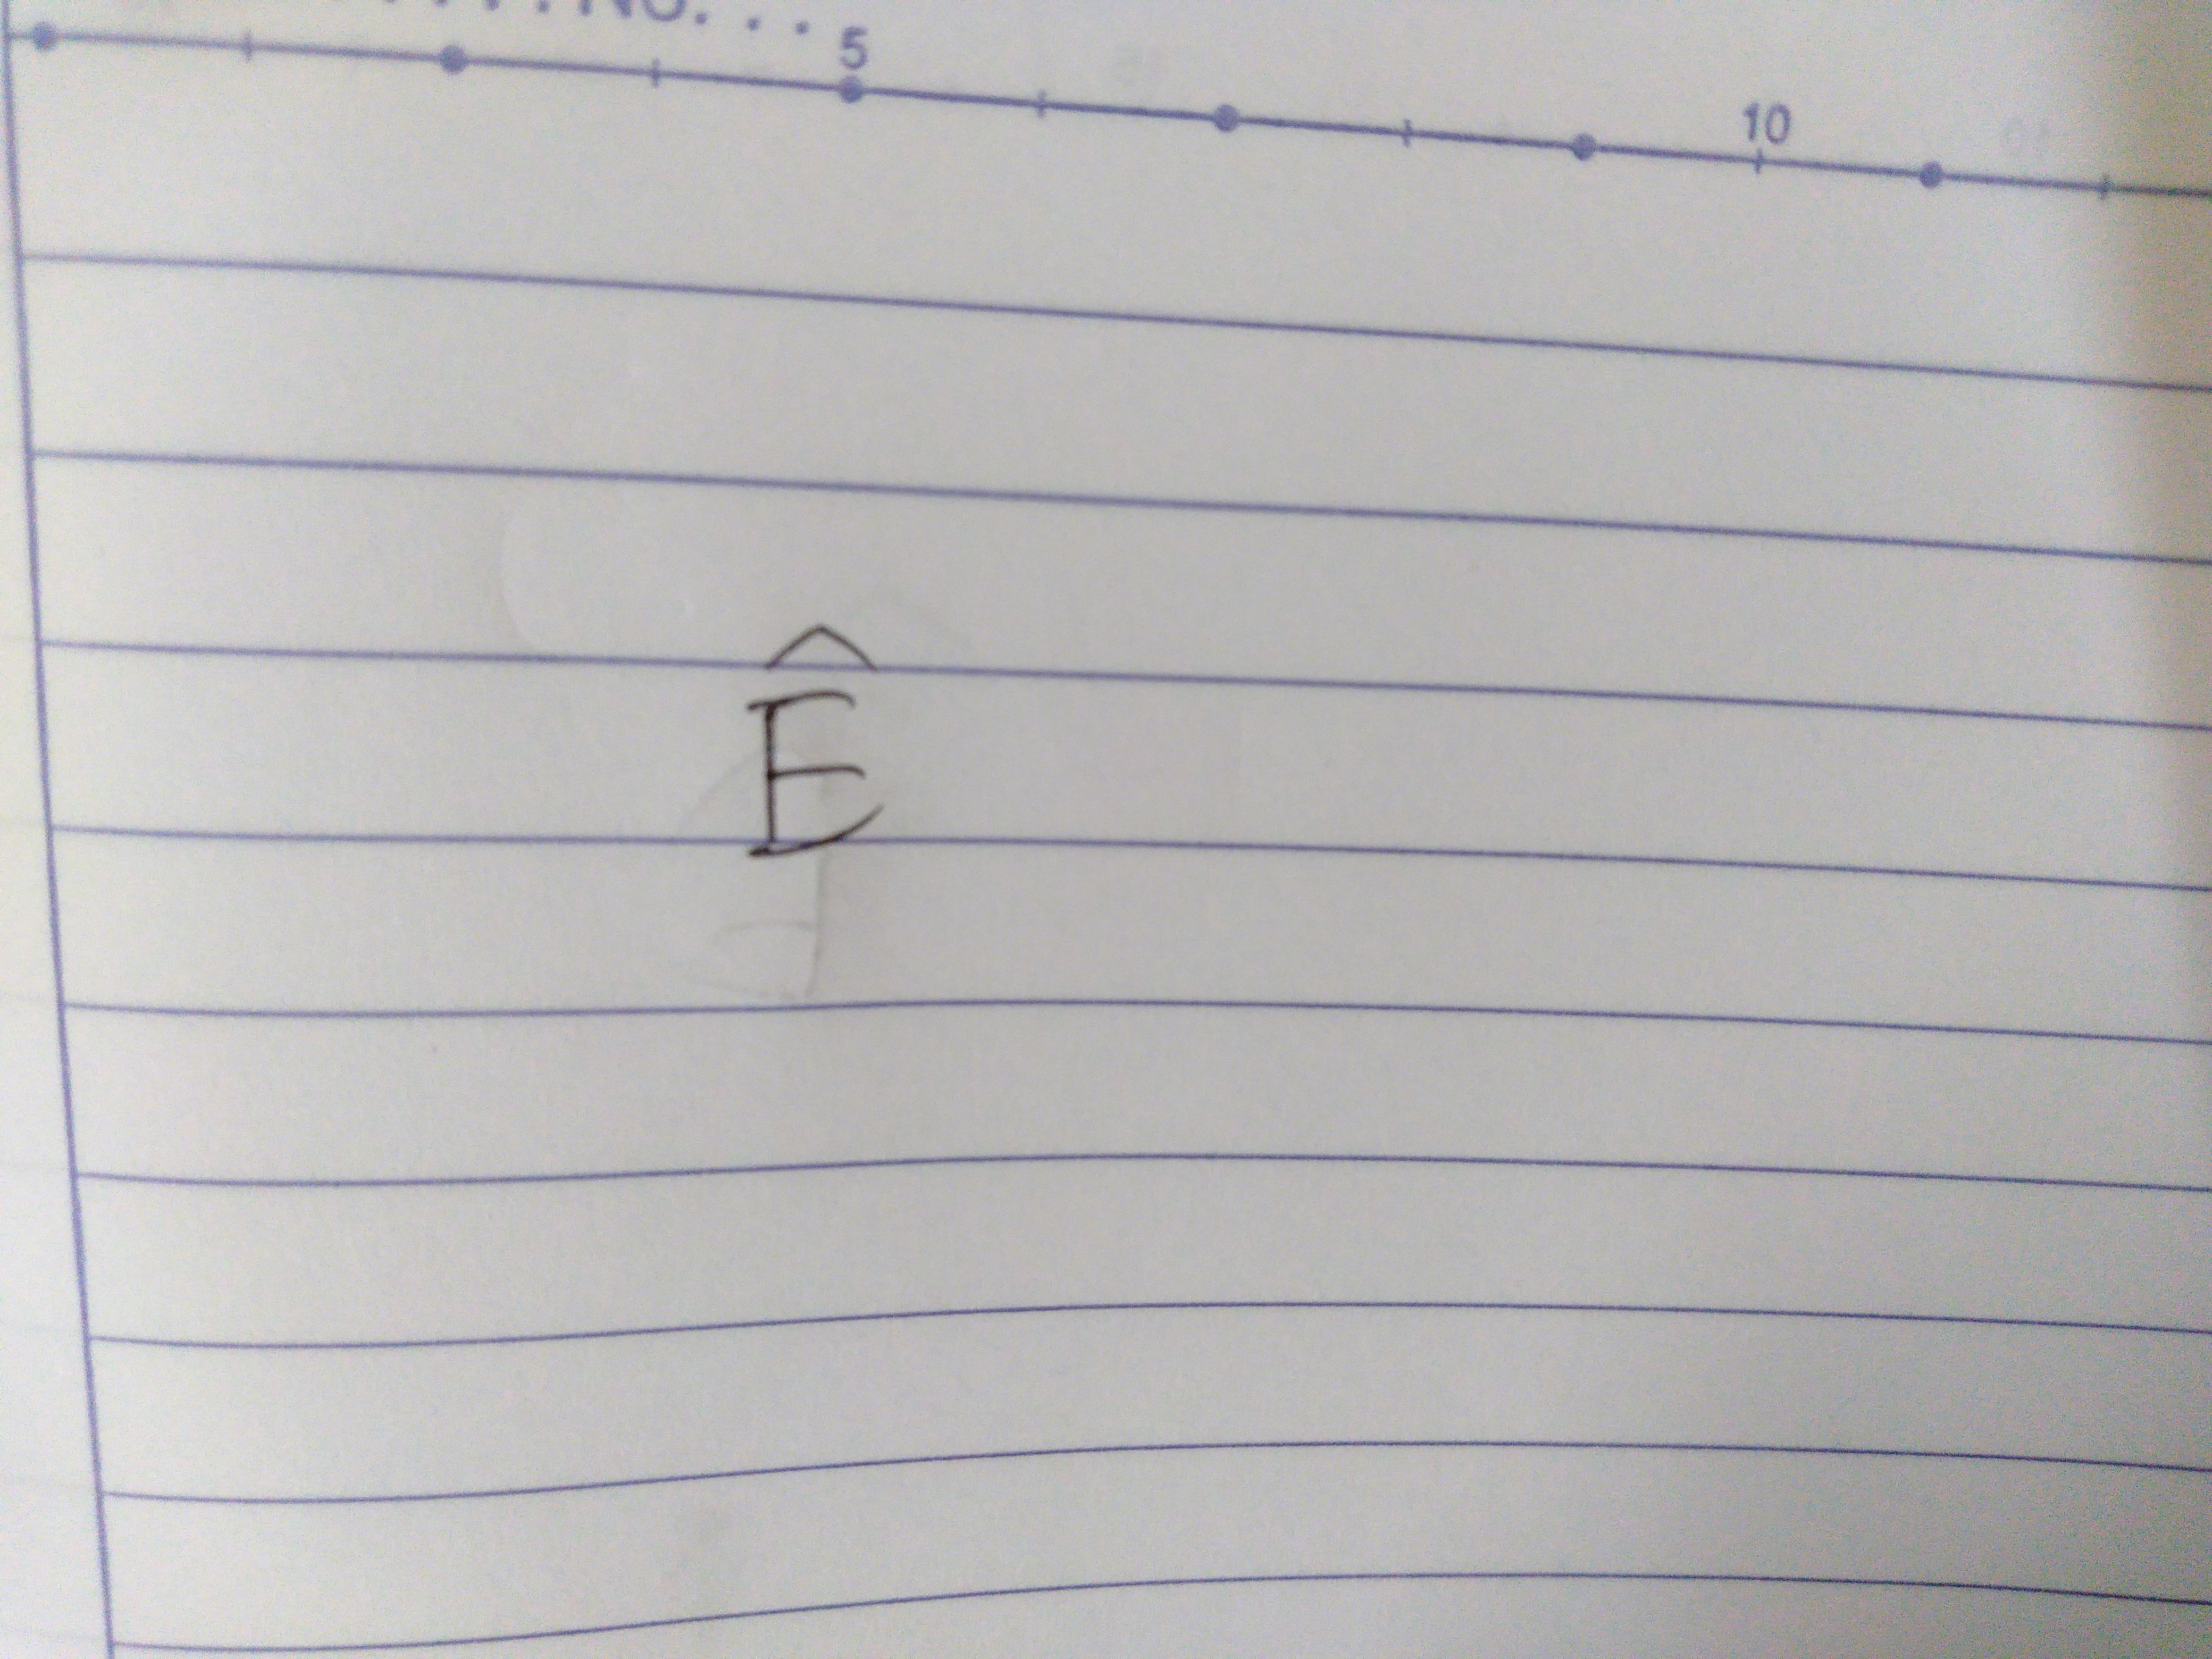 No. . .
5
10
Ê